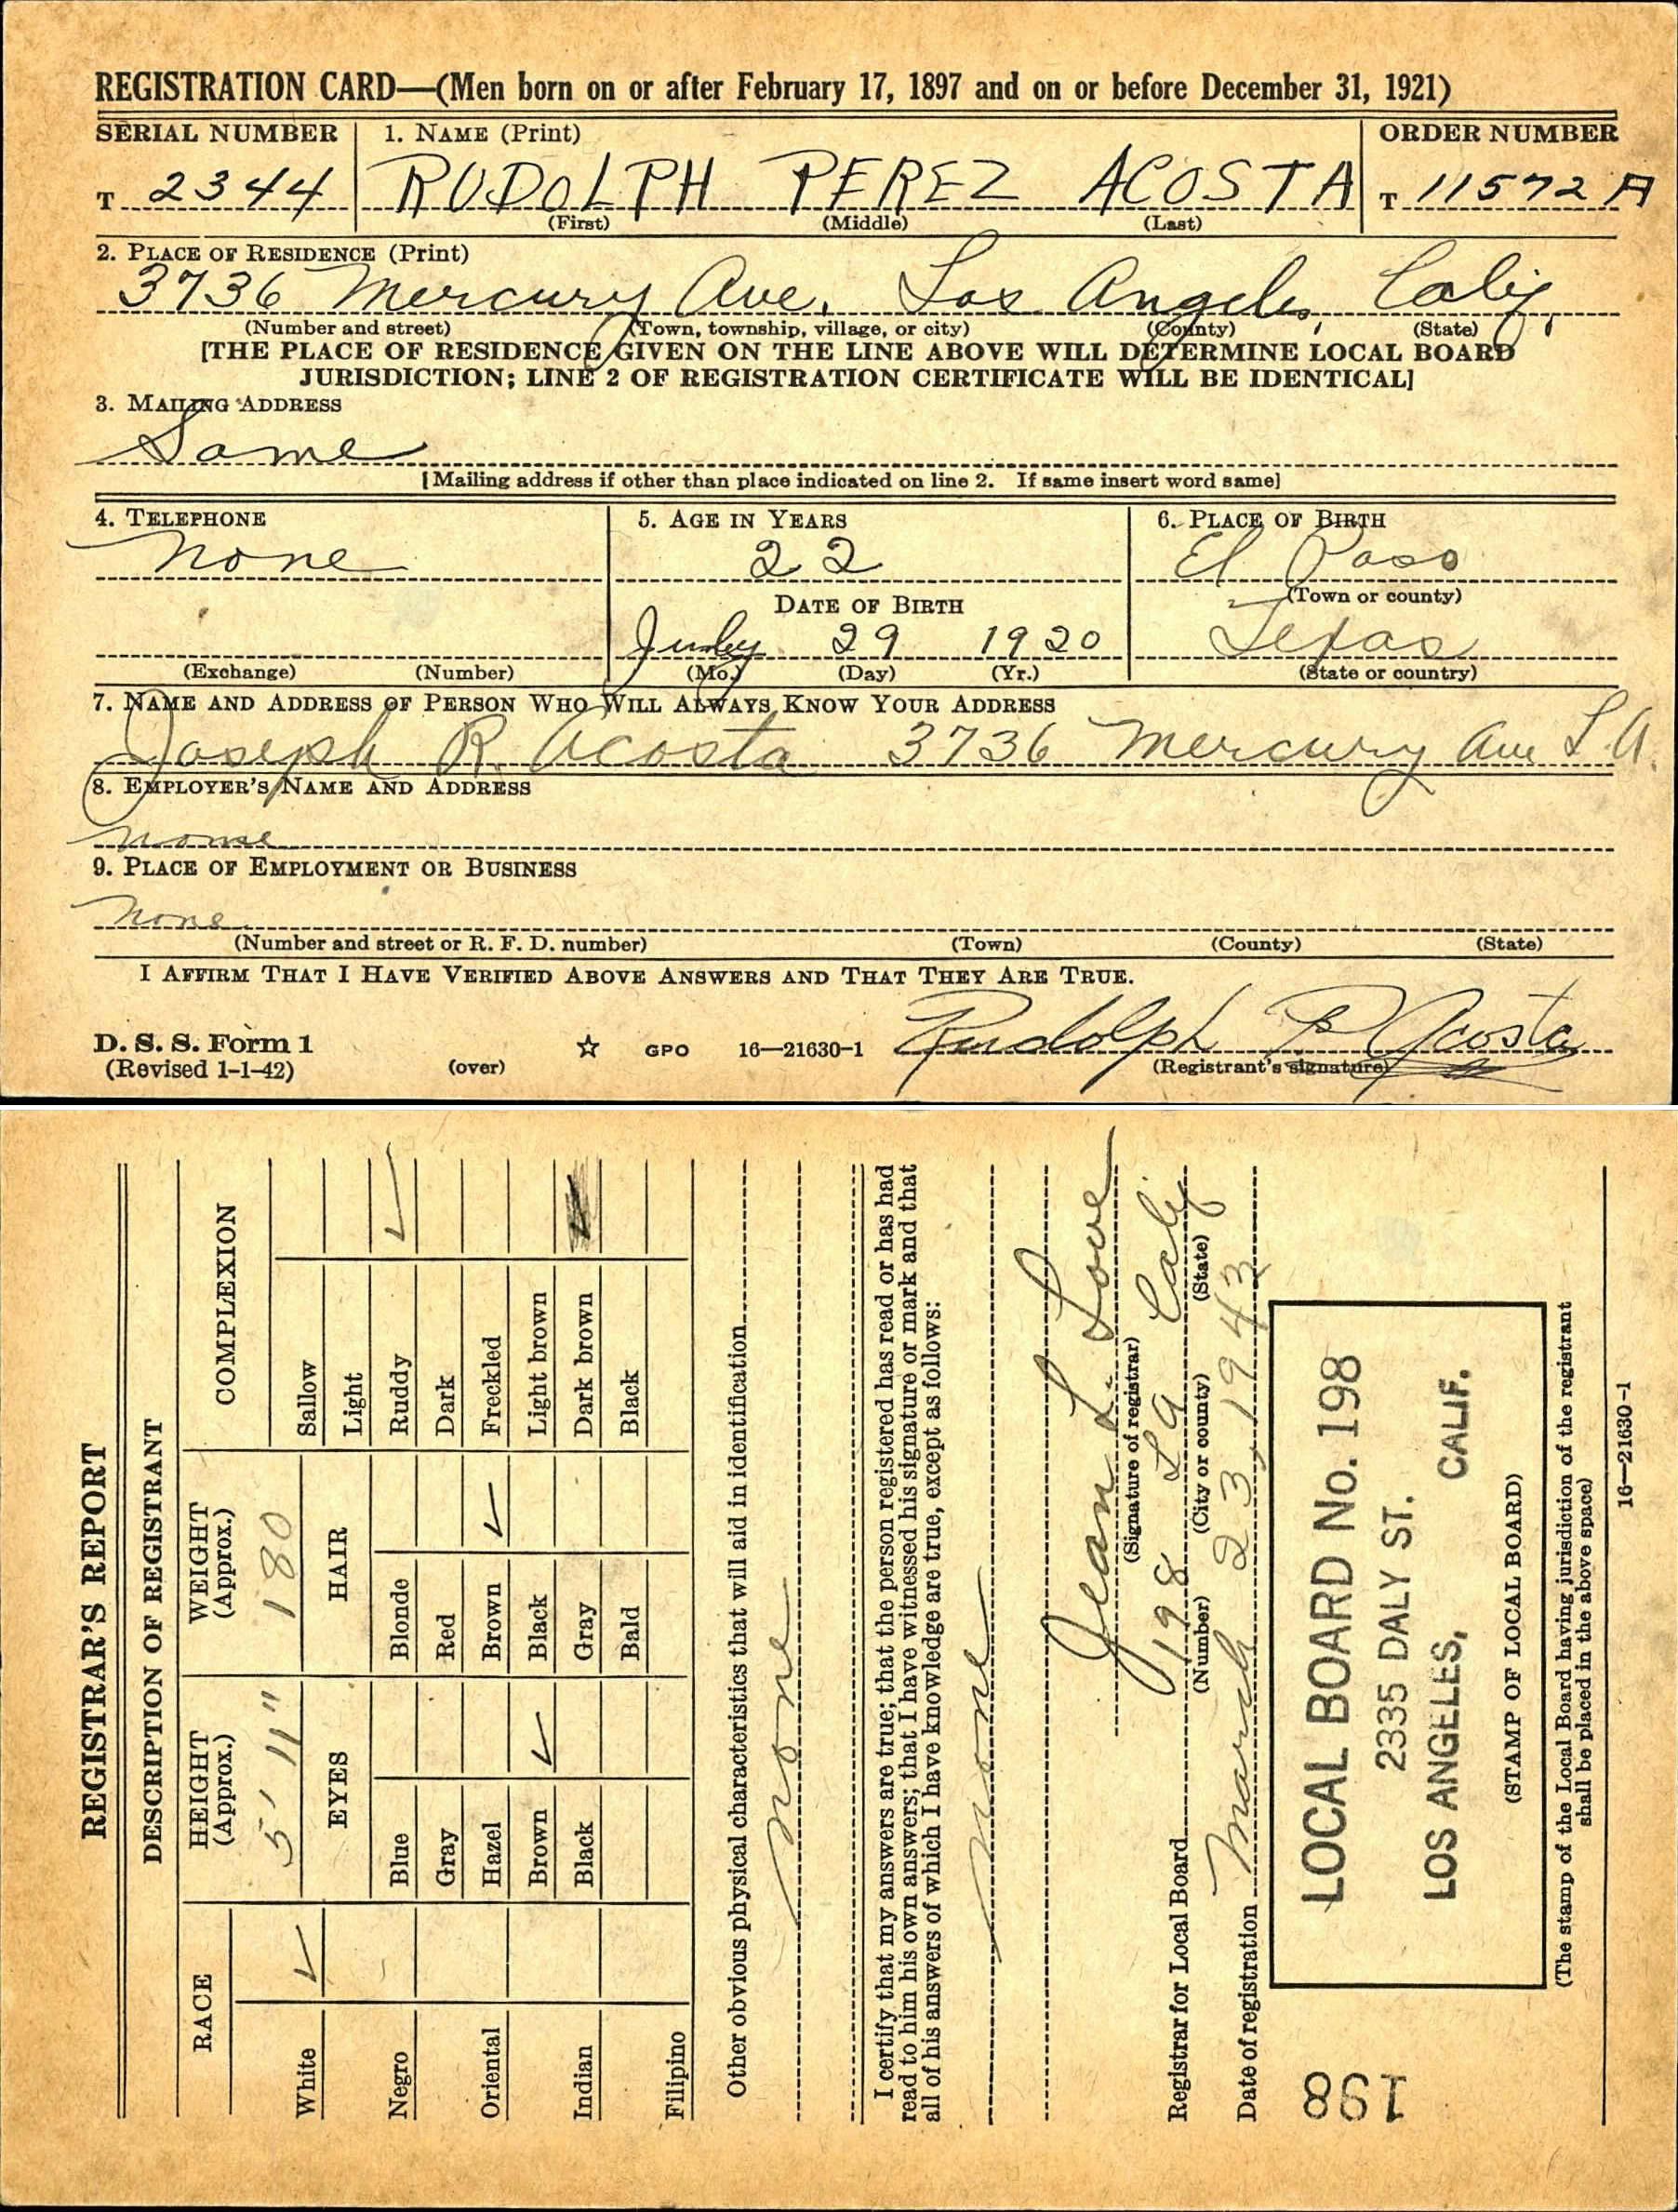 REGISTRATION CARD—(Men born on or after February 17, 1897 and on or before December 31, 1921)
SERIAL NUMBER 1. NAME (Print) ORDER NUMBER
T 2344 RUDOLPH PEREZ ACOSTA T 11572 A
(First) (Middle) (Last)
2. PLACE OF RESIDENCE (Print)
3736 Mercury Ave. Los Angeles, Calif.
(Number and street) (Town, township, village, or city) (County) (State)
[THE PLACE OF RESIDENCE GIVEN ON THE LINE ABOVE WILL DETERMINE LOCAL BOARD
JURISDICTION; LINE 2 OF REGISTRATION CERTIFICATE WILL BE IDENTICAL]
3. MAILING ADDRESS
Same
[Mailing address if other than place indicated on line 2. If same insert word same]
4. TELEPHONE 5. AGE IN YEARS 6. PLACE OF BIRTH
None 22 El Paso
DATE OF BIRTH (Town or county)
29 1920 Texas
(Exchange) (Number) (Mo.) (Day) (Yr.) (State or country)
7. NAME AND ADDRESS OF PERSON WHO WILL ALWAYS KNOW YOUR ADDRESS
Joseph R. Acosta 3736 Mercury Ave L.A.
8. EMPLOYER'S NAME AND ADDRESS
None
9. PLACE OF EMPLOYMENT OR BUSINESS
None
(Number and street or R. F. D. number) (Town) (County) (State)
I AFFIRM THAT I HAVE VERIFIED ABOVE ANSWERS AND THAT THEY ARE TRUE.
Rudolph P. Acosta
D. S. S. Form 1
(Revised 1-1-42) (over) ☆ GPO 16—21630-1 (Registrant's signature)
REGISTRAR'S REPORT
DESCRIPTION OF REGISTRANT
RACE HEIGHT (Approx.) WEIGHT (Approx.) COMPLEXION
5' 11" 180
White ✓ EYES HAIR Sallow
Light
Negro Blue Blonde Ruddy ✓
Gray Red Dark
Oriental Hazel Brown ✓ Freckled
Brown ✓ Black Light brown
Indian Black Gray Dark brown
Bald Black
Filipino
Other obvious physical characteristics that will aid in identification
None
I certify that my answers are true; that the person registered has read or has had
read to him his own answers; that I have witnessed his signature or mark and that
all of his answers of which I have knowledge are true, except as follows:
None
Jean L. Love
(Signature of registrar)
Registrar for Local Board 198 LA Calif
(Number) (City or county) (State)
Date of registration March 23, 1943
LOCAL BOARD No. 198
2335 DALY ST.
LOS ANGELES, CALIF.
(STAMP OF LOCAL BOARD)
(The stamp of the Local Board having jurisdiction of the registrant
shall be placed in the above space)
16—21630-1
198